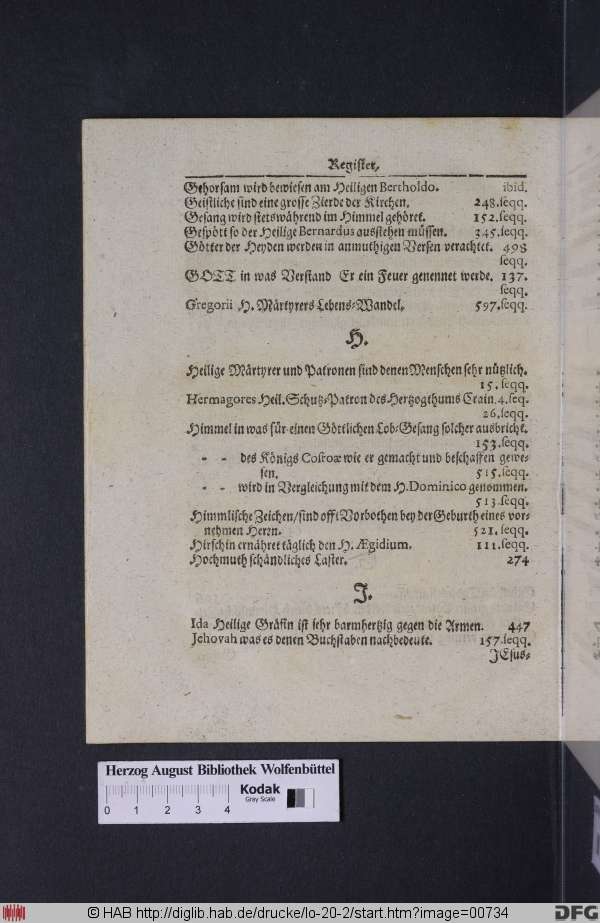 Register,
Gehorsam wird bewiesen am Heiligen Bertholdo. ibid.
Geistliche sind eine grosse Zierde der Kirchen. 248.seqq.
Gesang wird stetswährend im Himmel gehöret. 152.seqq.
Gespött so der Heilige Bernardus ausstehen müssen. 345.seqq.
Götter der Heyden werden in anmuthigen Versen verachtet. 498
seqq.
GOTT in was Verstand Er ein Feuer genennet werde. 137.
seqq.
Gregorii H. Märtyrers Lebens-Wandel. 597.seqq.
H.
Heilige Märtyrer und Patronen sind denen Menschen sehr nützlich.
15.seqq.
Hermagores Heil. Schutz-Patron des Hertzogthums Crain. 4.seq.
26.seqq.
Himmel in was für einen Göttlichen Lob-Gesang solcher ausbricht.
153.seqq.
- - des Königs Cosroæ wie er gemacht und beschaffen gewe-
sen. 515.seqq.
- - wird in Vergleichung mit dem H. Dominico genommen.
513.seqq.
Himmlische Zeichen/sind offt Vorbothen bey der Geburth eines vor-
nehmen Herrn. 521.seqq.
Hirschin ernähret täglich den H. Ægidium. 111.seqq.
Hochmuth schändliches Laster. 274
J.
Ida Heilige Gräfin ist sehr barmhertzig gegen die Armen. 447
Jehovah was es denen Buchstaben nach bedeute. 157.seqq.
JEsus-
Herzog August Bibliothek Wolfenbüttel
Kodak
Gray Scale
0 1 2 3 4
© HAB http://diglib.hab.de/drucke/lo-20-2/start.htm?image=00734
DFG